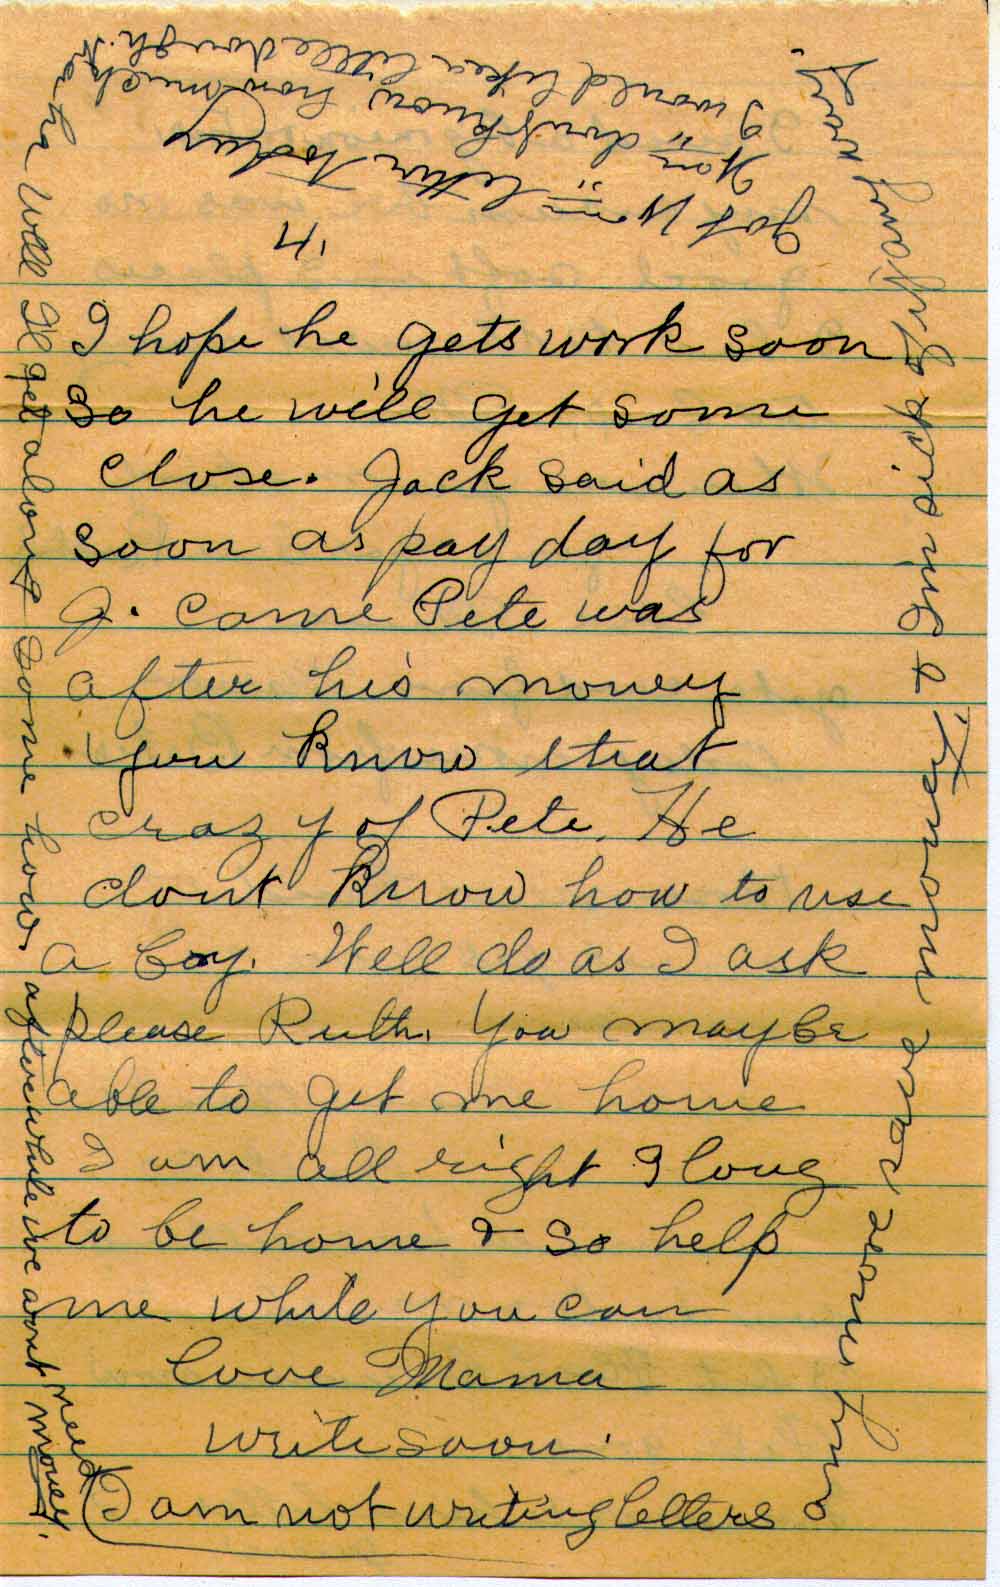 4
I hope he gets work soon
So he will get some
close. Jack said as
soon as pay day for
J. came Pete was
after his money
you know that
crazy of Pete. He
dont know how to use
a boy. Well do as I ask
please Ruth. You maybe
able to get me home
I am all right I long
to be home & so help
me while you can
love Mama
write soon.
(I am not writing letters
any more save money, & I'm sick of it,
Got letter today
Hon dont know how much
I would like a little dough. ha
ha Well Ill get along some how, after while we wont need money.